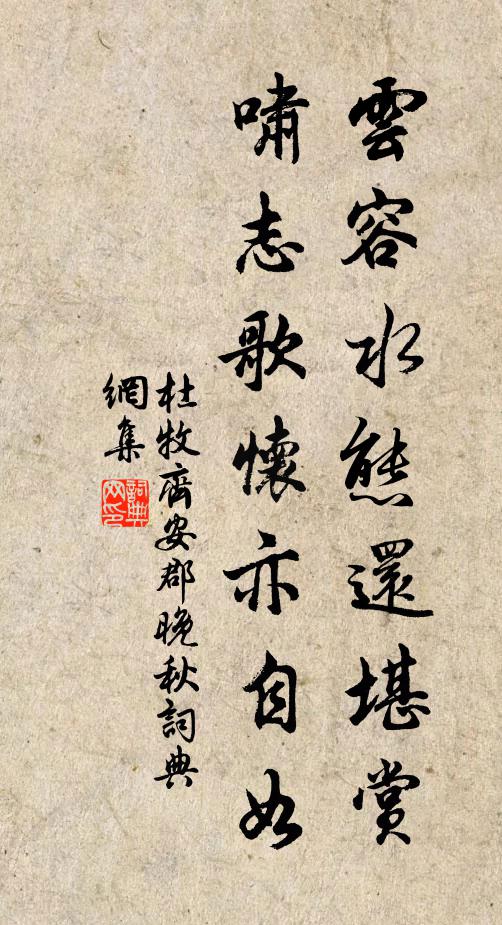 雲容水態還堪賞
嘯志歌懷亦自如
杜牧齊安郡晚秋詞典
網集
詞典網印